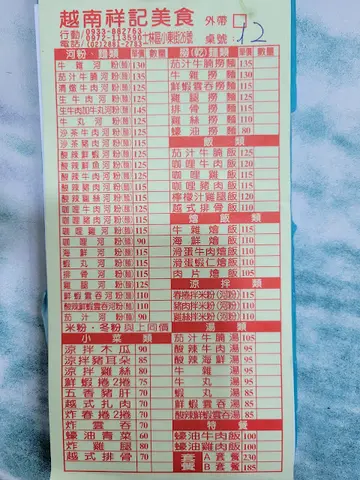 越南祥記美食 外帶
行動/0933-882763
0972-113690 士林區小東街26號
電話/(02)2881-2783 桌號: 12
河粉·麵類 單價 數量
牛雜河粉(麵) 130
茄汁牛腩河粉(麵) 125
清燉牛肉河粉(麵) 125
生牛肉河粉(麵) 125
生牛肉加牛丸河粉(麵) 145
牛丸河粉(麵) 115
沙茶牛肉河粉(麵) 125
沙茶豬肉河粉(麵) 115
酸辣鮮蝦河粉(麵) 115
酸辣鮮魚河粉(麵) 115
酸辣牛肉河粉(麵) 125
咖哩牛肉河粉(麵) 125
咖哩豬肉河粉(麵) 115
咖哩雞河粉(麵) 115
咖哩河粉(麵) 90
海鮮河粉(麵) 115
蝦丸河粉(麵) 115
排骨河粉(麵) 115
雞腿河粉(麵)
鮮蝦雲吞河粉(麵) 115
茄汁河粉(麵) 90
米粉·冬粉與上同價
小菜類
涼拌木瓜 90
涼拌豬耳朵 85
涼拌雞絲 80
鮮蝦捲2捲 75
五香豬肝 70
越式扎肉 70
炸春捲2捲 70
炸雲吞 70
蠔油青菜 60
炸雞腿 80
越式排骨 70
撈(乾)麵類 單價 數量
茄汁牛腩撈麵 135
牛雜撈麵 135
鮮蝦雲吞撈麵 115
雞腿撈麵
排骨撈麵 115
蠔油撈麵 80
飯類
茄汁牛腩飯 120
咖哩牛肉飯 120
咖哩雞飯 110
咖哩豬肉飯 110
檸檬汁雞腿飯 120
越式排骨飯 110
燴飯類
牛雜燴飯 115
海鮮燴飯 110
滑蛋牛肉燴飯 110
滑蛋蝦仁燴飯 110
肉片燴飯 105
涼拌類
春捲拌米粉(河粉) 115
豬肉拌米粉(河粉) 115
雞絲拌米粉(河粉) 115
湯類
茄汁牛腩湯 105
酸辣牛肉湯 105
酸辣海鮮湯 105
牛雜湯 105
牛丸湯 85
蝦丸湯 85
鮮蝦雲吞湯 85
酸辣鮮蝦雲吞湯 85
特餐
蠔油牛肉飯 100
蠔油雞飯 100
套餐 A套餐 230
B套餐 185